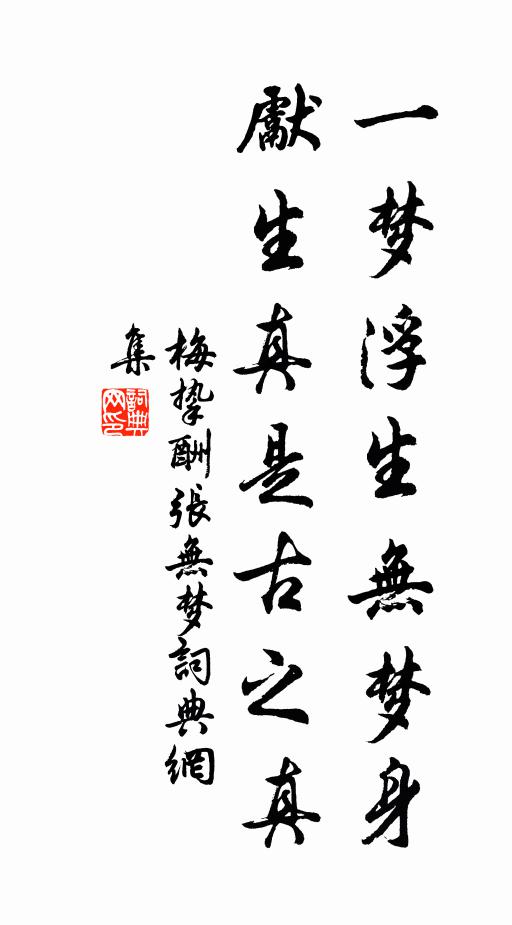 一梦浮生無梦身
獻生真是古之真
梅挚酬張無梦詞典網
集
詞典
网印